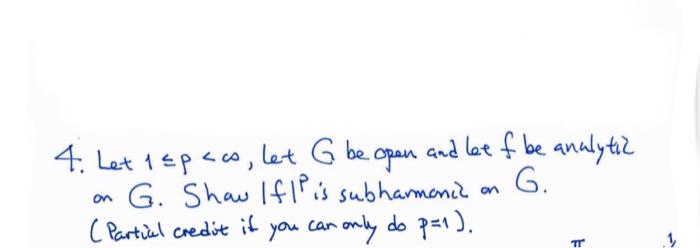 4. Let 1 ≤ p < ∞, let G be open and let f be analytic
on G. Show |f|ᵖ is subharmonic on G.
(Partial credit if you can only do p=1).
π 1